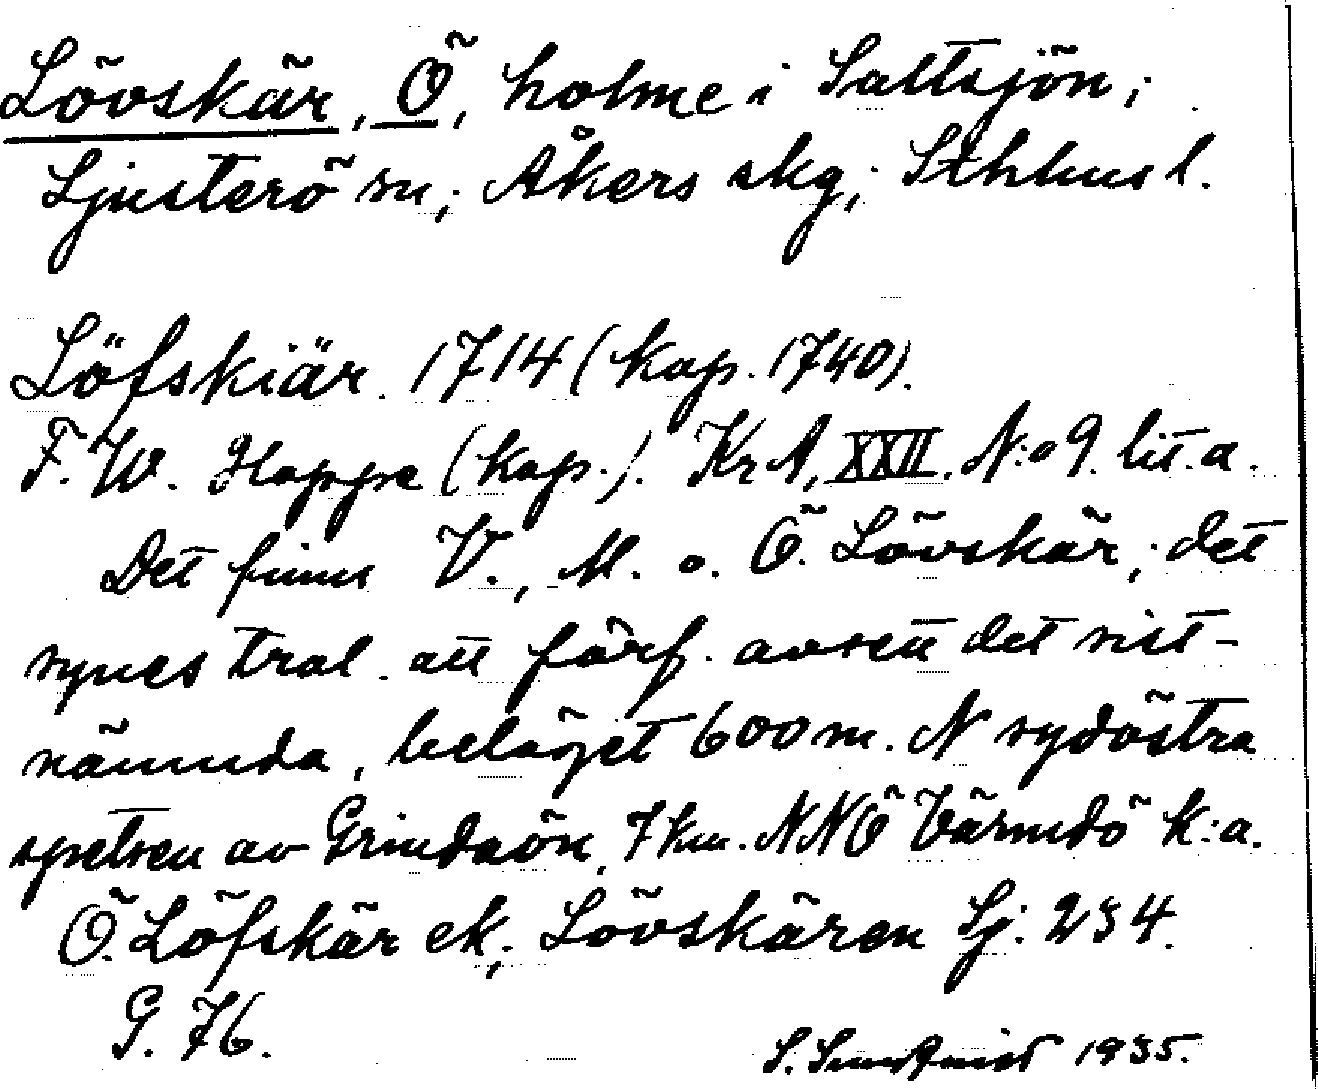 Lövskär, Ö, holme i Saltsjön;
Ljusterö sn; Åkers skg; Sthlms l.
Löfskiär. 1714 (kop. 1740).
F. W. Hoppe (kop.). KrA, XXII. N:o 9. lit. a.
Det finns V., M. o. Ö. Lövskär; det
synes tral. att förf. avsett det sist-
nämnda, beläget 600 m. N sydöstra
spetsen av Grindaön, 7 km. NNÖ Värmdö k:a.
Ö. Löfskär ek; Lövskären Sj. 234.
G. 76.
S. Sundqvist 1935.